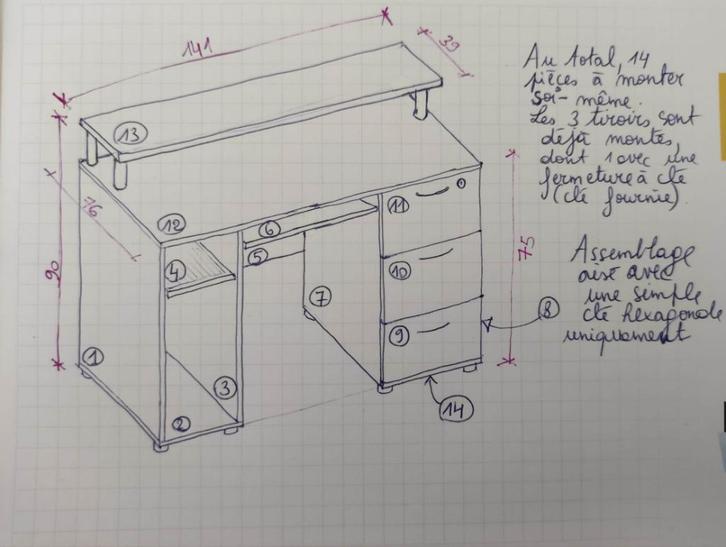 141
39
Au total, 14
pièces à monter
soi-même.
Les 3 tiroirs sont
déjà montés,
dont 1 avec une
fermeture à clé
(clé fournie).
13
76
12
11
6
4
5
10
75
90
7
Assemblage
aisé avec
une simple
clé hexagonale
uniquement
8
9
1
3
2
14